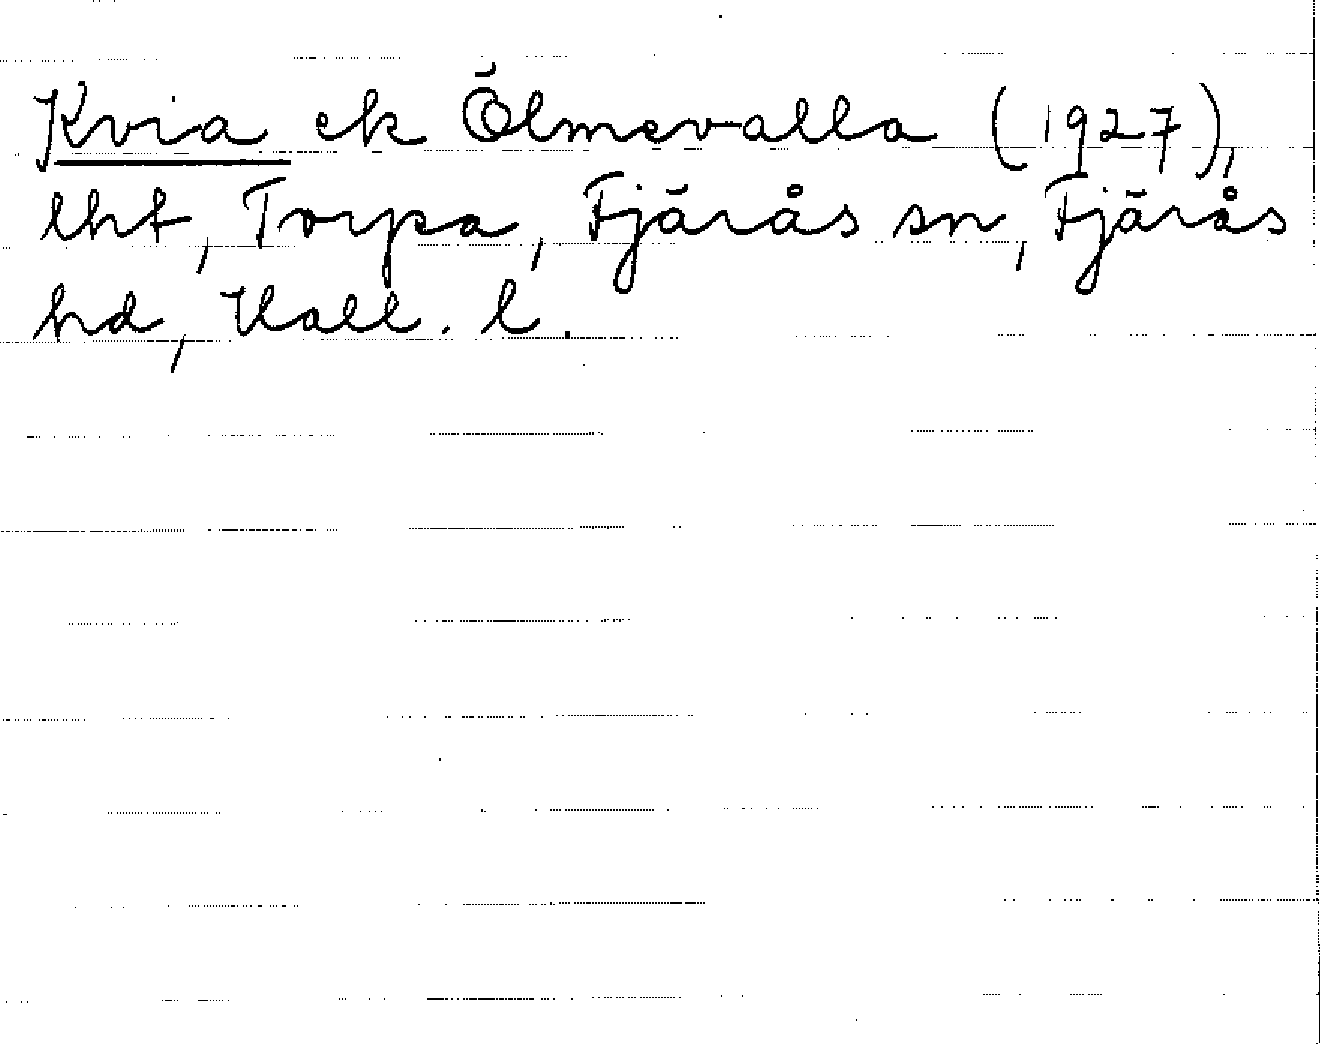 Kvia ek Ölmevalla (1927),
lht, Torpa, Fjärås sn, Fjärås
hd, Hall. l.